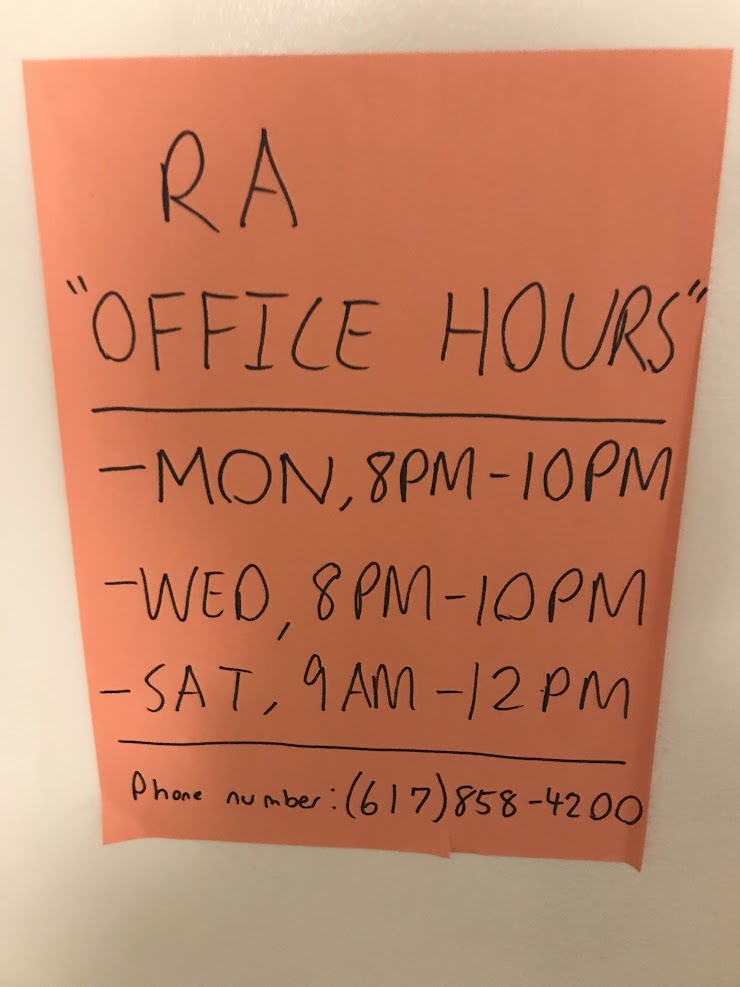 RA
"OFFICE HOURS"
-MON, 8PM-10PM
-WED, 8PM-10PM
-SAT, 9AM-12PM
Phone number: (617)858-4200